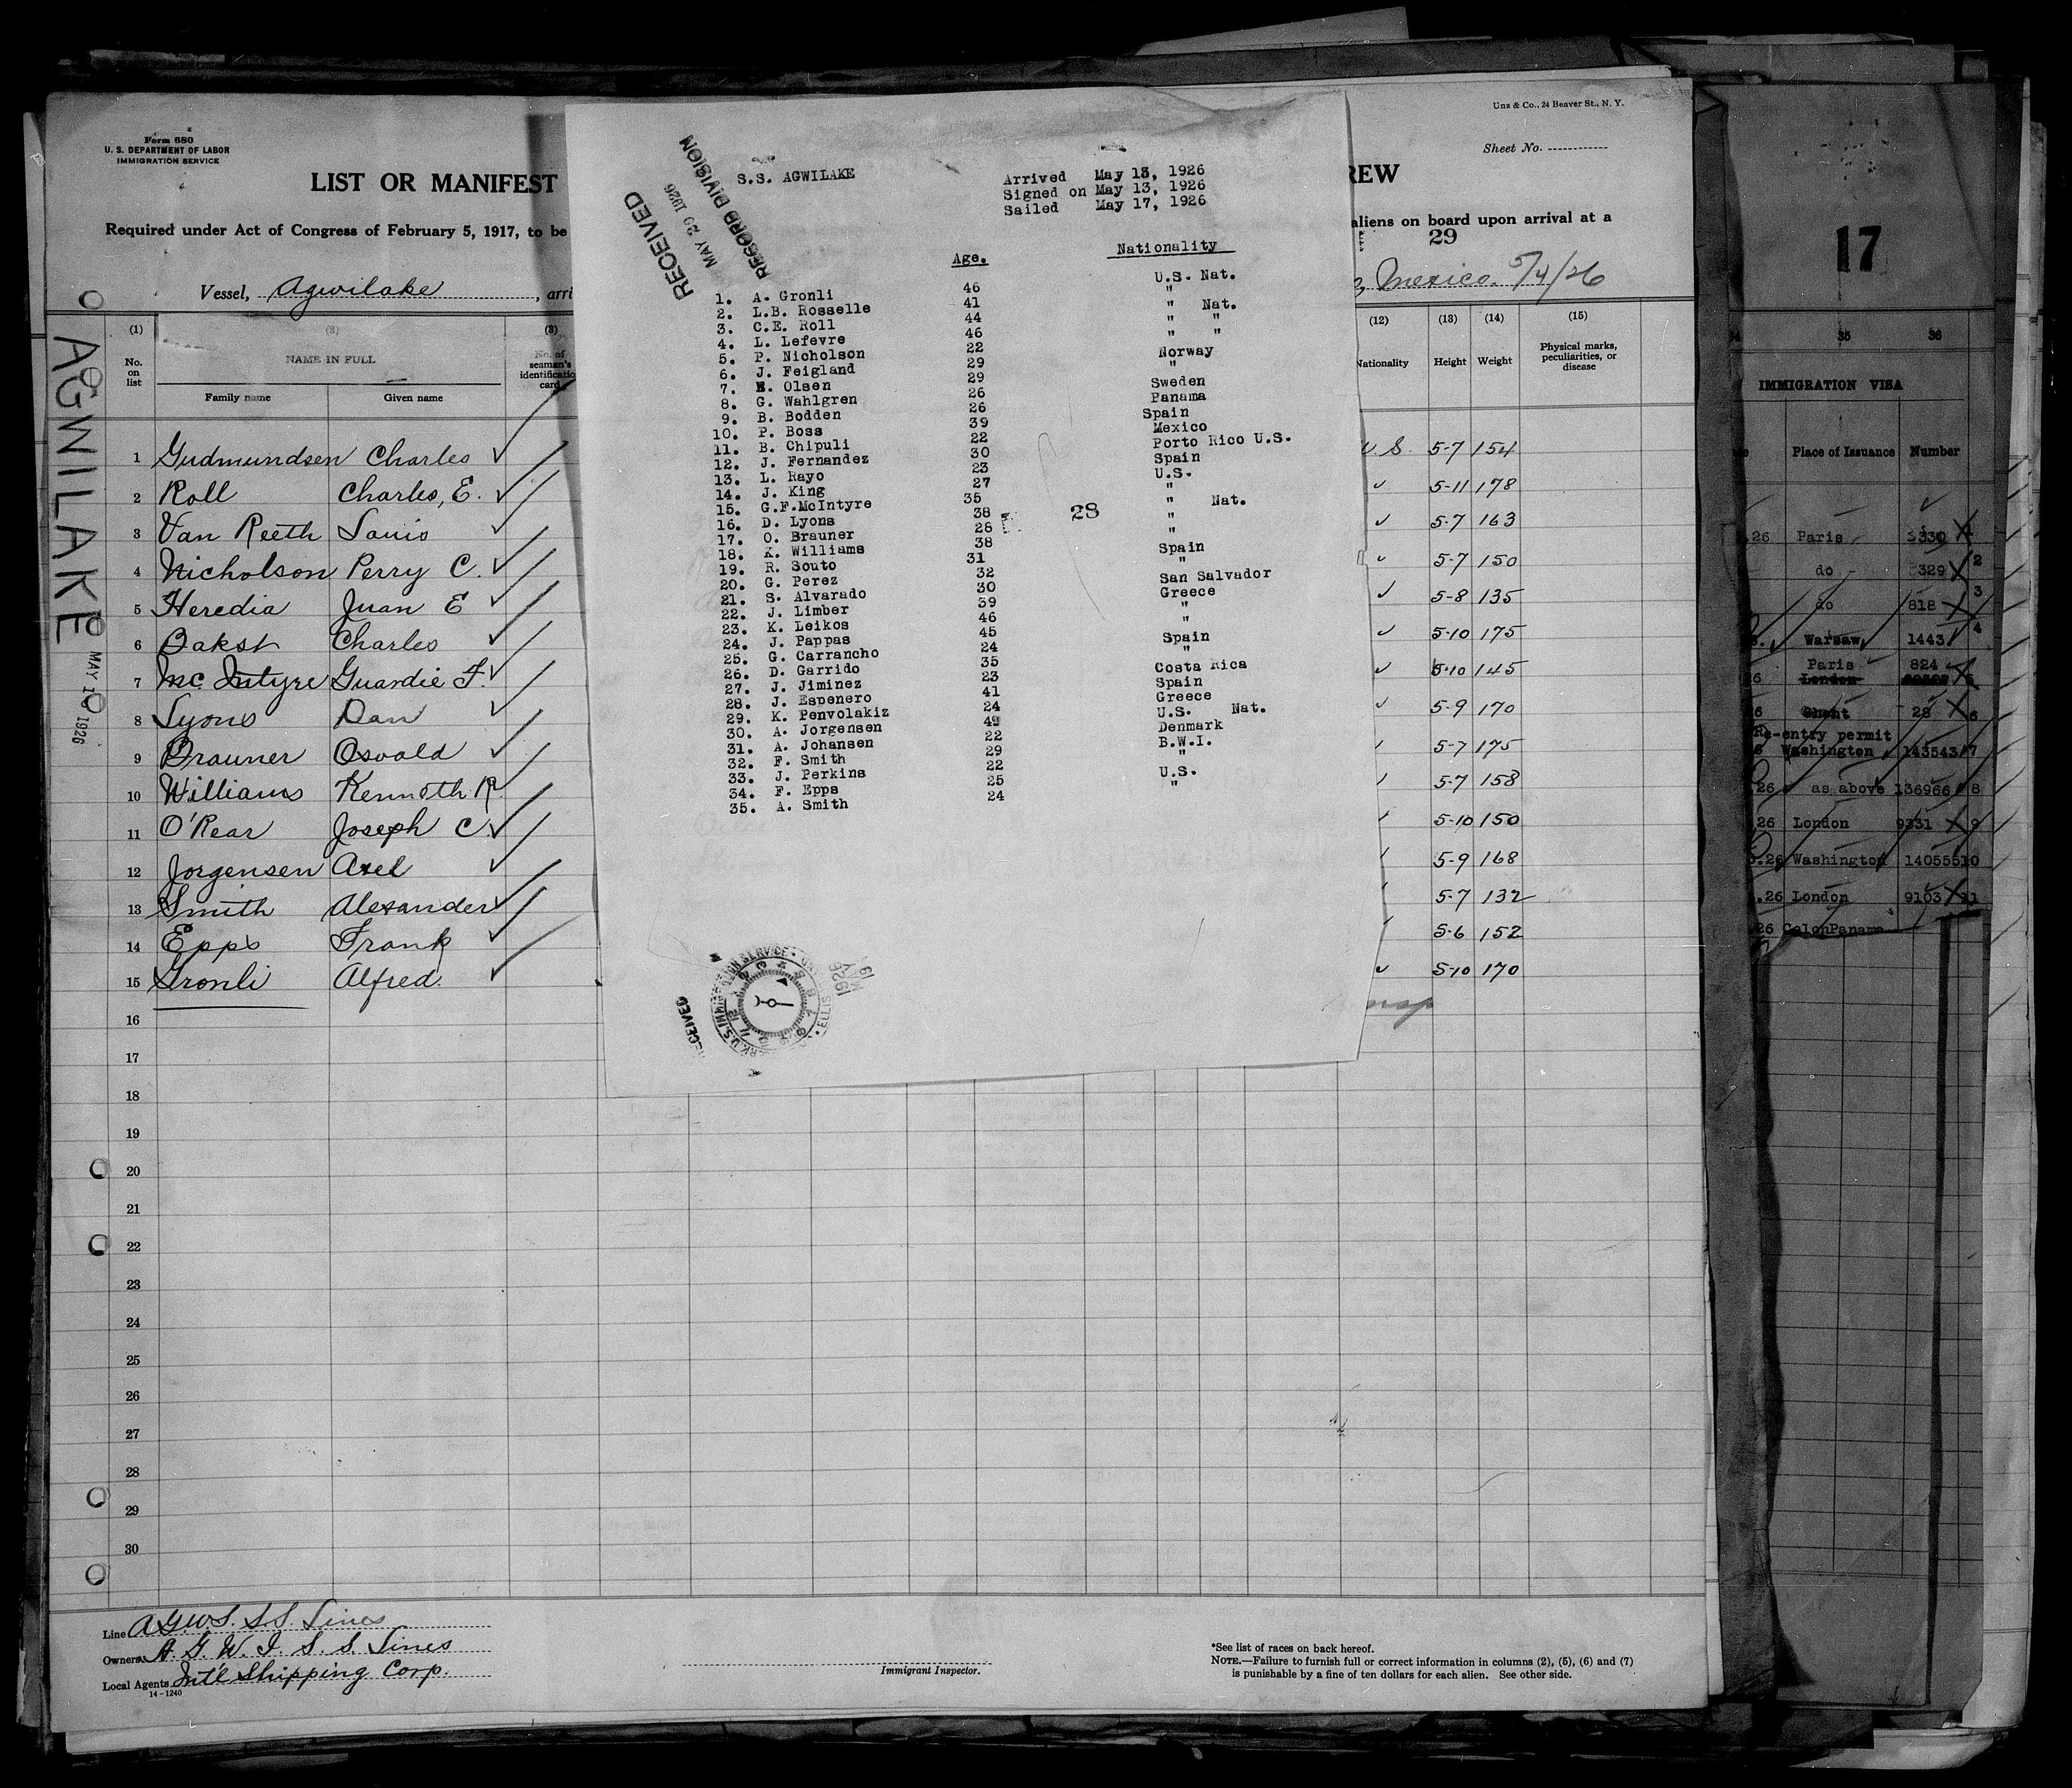 Unz & Co., 24 Beaver St., N. Y.
Form 680
U. S. DEPARTMENT OF LABOR
IMMIGRATION SERVICE
Sheet No.
LIST OR MANIFEST
REW
Required under Act of Congress of February 5, 1917, to be
aliens on board upon arrival at a
29
Vessel, Agwilake, arri
Mexico. 5/4/26
AGWILAKE
MAY 1 1926
(1) (2) (3)
No. on list
NAME IN FULL
Family name Given name
No. of seaman's identification card
(12) (13) (14) (15)
Nationality Height Weight Physical marks, peculiarities, or disease
1 Gudmundsen Charles U.S. 5-7 154
2 Roll Charles, E. 5-11 178
3 Van Reeth Louis 5-7 163
4 Nicholson Perry C. 5-7 150
5 Heredia Juan E 5-8 135
6 Bakst Charles 5-10 175
7 Mc Intyre Guardie F. 5-10 145
8 Lyons Dan 5-9 170
9 Brauner Osvald 5-7 175
10 Williams Kenneth R. 5-7 158
11 O'Rear Joseph C 5-10 150
12 Jorgensen Axel 5-9 168
13 Smith Alexander 5-7 132
14 Epps Frank 5-6 152
15 Gronli Alfred. 5-10 170
16
17
18
19
20
21
22
23
24
25
26
27
28
29
30
Line A.G.W.I. S.S. Lines
Owners A. G. W. I. S. S. Lines
Local Agents Int'l Shipping Corp.
14-1240
Immigrant Inspector.
*See list of races on back hereof.
NOTE.—Failure to furnish full or correct information in columns (2), (5), (6) and (7)
is punishable by a fine of ten dollars for each alien. See other side.
RECEIVED
MAY 20 1926
RECORD DIVISION
S.S. AGWILAKE
Arrived May 13, 1926
Signed on May 13, 1926
Sailed May 17, 1926
Age. Nationality
1. A. Gronli 46 U.S. Nat.
2. L.B. Rosselle 41 "
3. C.E. Roll 44 " Nat.
4. L. Lefevre 46 " "
5. P. Nicholson 22 " "
6. J. Feigland 29 Norway
7. E. Olsen 29 "
8. G. Wahlgren 26 Sweden
9. B. Bodden 26 Panama
10. P. Boss 39 Spain
11. B. Chipuli 22 Mexico
12. J. Fernandez 30 Porto Rico U.S.
13. L. Rayo 23 Spain
14. J. King 27 U.S.
15. G.F.McIntyre 35 "
16. D. Lyons 38 " Nat.
17. O. Brauner 28 "
18. K. Williams 38 "
19. R. Souto 31 Spain
20. G. Perez 32 "
21. S. Alvarado 30 San Salvador
22. J. Limber 39 Greece
23. K. Leikos 46 "
24. J. Pappas 45 "
25. G. Carrancho 24 Spain
26. D. Garrido 35 "
27. J. Jiminez 23 Costa Rica
28. J. Espenero 41 Spain
29. K. Penvolakiz 24 Greece
30. A. Jorgensen 49 U.S. Nat.
31. A. Johansen 22 Denmark
32. F. Smith 29 B.W.I.
33. J. Perkins 22 "
34. F. Epps 25 U.S.
35. A. Smith 24 "
28
RECEIVED
U.S. IMMIGRATION SERVICE
ELLIS
1926
17
35 36
IMMIGRATION VISA
Place of Issuance Number
26 Paris 3330 1
do 329 2
do 818 3
Warsaw 1443 4
Paris 824
26 London 5
26 Ghent 28 6
Re-entry permit
Washington 143543 7
26 as above 136966 8
26 London 9331 9
26 Washington 140555 10
26 London 9103 11
26 ColonPanama